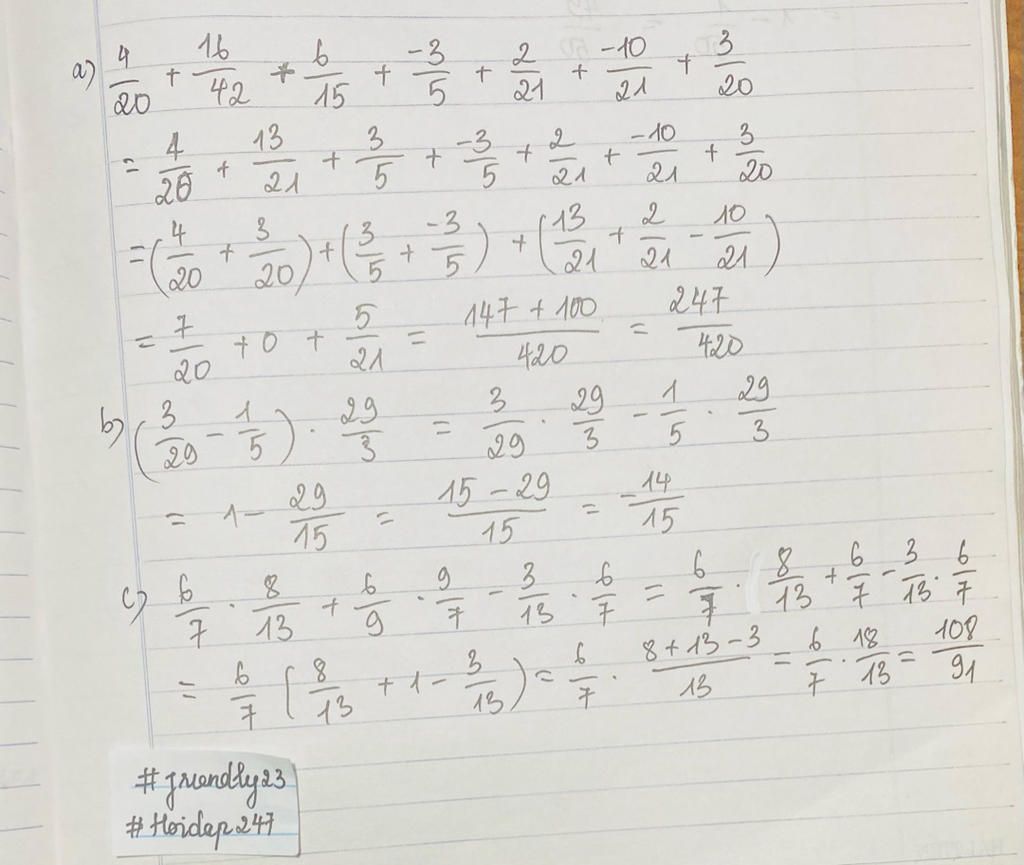 a) 4/20 + 16/42 + 6/15 + -3/5 + 2/21 + -10/21 + 3/20
= 4/20 + 13/21 + 3/5 + -3/5 + 2/21 + -10/21 + 3/20
= (4/20 + 3/20) + (3/5 + -3/5) + (13/21 + 2/21 - 10/21)
= 7/20 + 0 + 5/21 = 147 + 100/420 = 247/420
b) (3/29 - 1/5) . 29/3 = 3/29 . 29/3 - 1/5 . 29/3
= 1 - 29/15 = 15 - 29/15 = -14/15
c) 6/7 . 8/13 + 6/9 . 9/7 - 3/13 . 6/7 = 6/7 . 8/13 + 6/7 - 3/13 . 6/7
= 6/7 (8/13 + 1 - 3/13) = 6/7 . 8 + 13 - 3/13 = 6/7 . 18/13 = 108/91
#friendly23
#Hoidap247